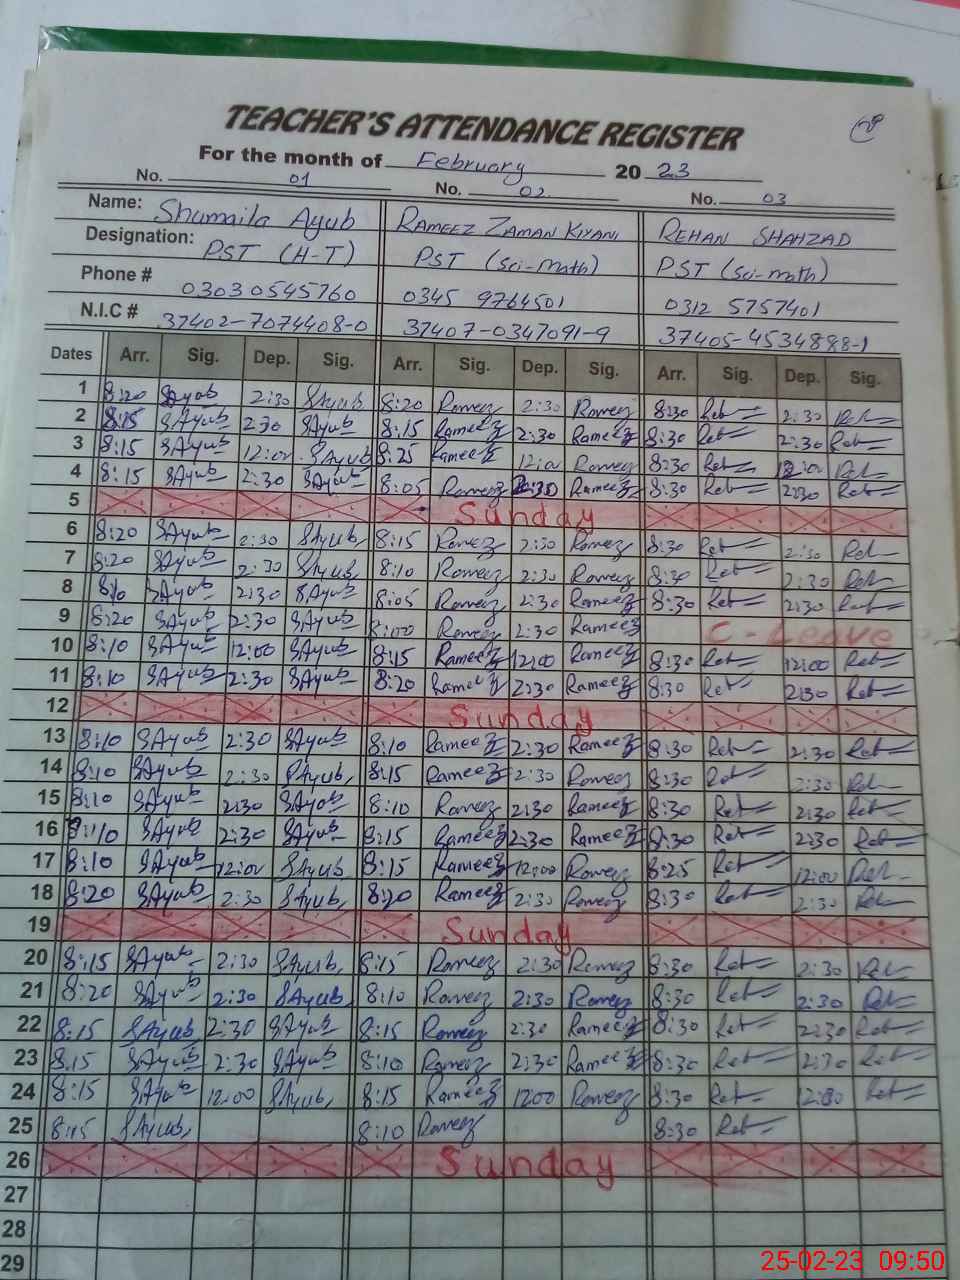 TEACHER'S ATTENDANCE REGISTER
For the month of February 20 23
No. 01 No. 02 No. 03
Name: Shumaila Ayub RAMEEZ ZAMAN KIYANI REHAN SHAHZAD
Designation: PST (H-T) PST (Sci-math) PST (Sci-math)
Phone # 03030545760 0345 9764501 0312 5757401
N.I.C # 37402-7074408-0 37407-0347091-9 37405-4534888-1
Dates Arr. Sig. Dep. Sig. Arr. Sig. Dep. Sig. Arr. Sig. Dep. Sig.
1 8:20 SAyub 2:30 SAyub 8:20 Rameez 2:30 Rameez 8:30 2:30
2 8:15 SAyub 2:30 SAyub 8:15 Rameez 2:30 Rameez 8:30 2:30
3 8:15 SAyub 12:00 SAyub 8:25 Rameez 12:00 Rameez 8:30 12:00
4 8:15 SAyub 2:30 SAyub 8:05 Rameez 2:30 Rameez 8:30 2:30
5 Sunday
6 8:20 SAyub 2:30 SAyub 8:15 Rameez 2:30 Rameez 8:30 2:30
7 8:20 SAyub 2:30 SAyub 8:10 Rameez 2:30 Rameez 8:30 2:30
8 8:10 SAyub 2:30 SAyub 8:05 Rameez 2:30 Rameez 8:30 2:30
9 8:20 SAyub 2:30 SAyub 8:00 Rameez 2:30 Rameez C-Leave
10 8:10 SAyub 12:00 SAyub 8:15 Rameez 12:00 Rameez 8:30 12:00
11 8:10 SAyub 2:30 SAyub 8:20 Rameez 2:30 Rameez 8:30 2:30
12 Sunday
13 8:10 SAyub 2:30 SAyub 8:10 Rameez 2:30 Rameez 8:30 2:30
14 8:10 SAyub 2:30 SAyub 8:15 Rameez 2:30 Rameez 8:30 2:30
15 8:10 SAyub 2:30 SAyub 8:10 Rameez 2:30 Rameez 8:30 2:30
16 8:10 SAyub 2:30 SAyub 8:15 Rameez 2:30 Rameez 8:30 2:30
17 8:10 SAyub 12:00 SAyub 8:15 Rameez 12:00 Rameez 8:25 12:00
18 8:20 SAyub 2:30 SAyub 8:20 Rameez 2:30 Rameez 8:30 2:30
19 Sunday
20 8:15 SAyub 2:30 SAyub 8:15 Rameez 2:30 Rameez 8:30 2:30
21 8:20 SAyub 2:30 SAyub 8:10 Rameez 2:30 Rameez 8:30 2:30
22 8:15 SAyub 2:30 SAyub 8:15 Rameez 2:30 Rameez 8:30 2:30
23 8:15 SAyub 2:30 SAyub 8:10 Rameez 2:30 Rameez 8:30 2:30
24 8:15 SAyub 12:00 SAyub 8:15 Rameez 1200 Rameez 8:30
25 8:15 SAyub 8:10 Rameez 8:30
26 Sunday
27
28
29
25-02-23 09:50